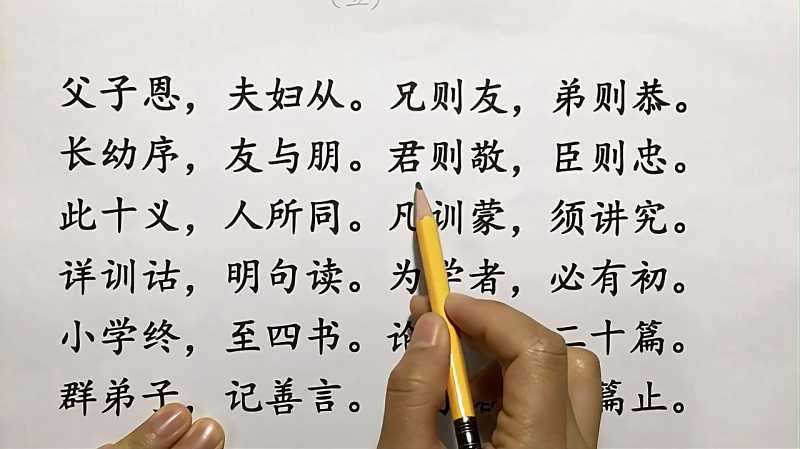 父子恩，夫妇从。兄则友，弟则恭。
长幼序，友与朋。君则敬，臣则忠。
此十义，人所同。凡训蒙，须讲究。
详训诂，明句读。为学者，必有初。
小学终，至四书。论 二十篇。
群弟子，记善言。 篇止。